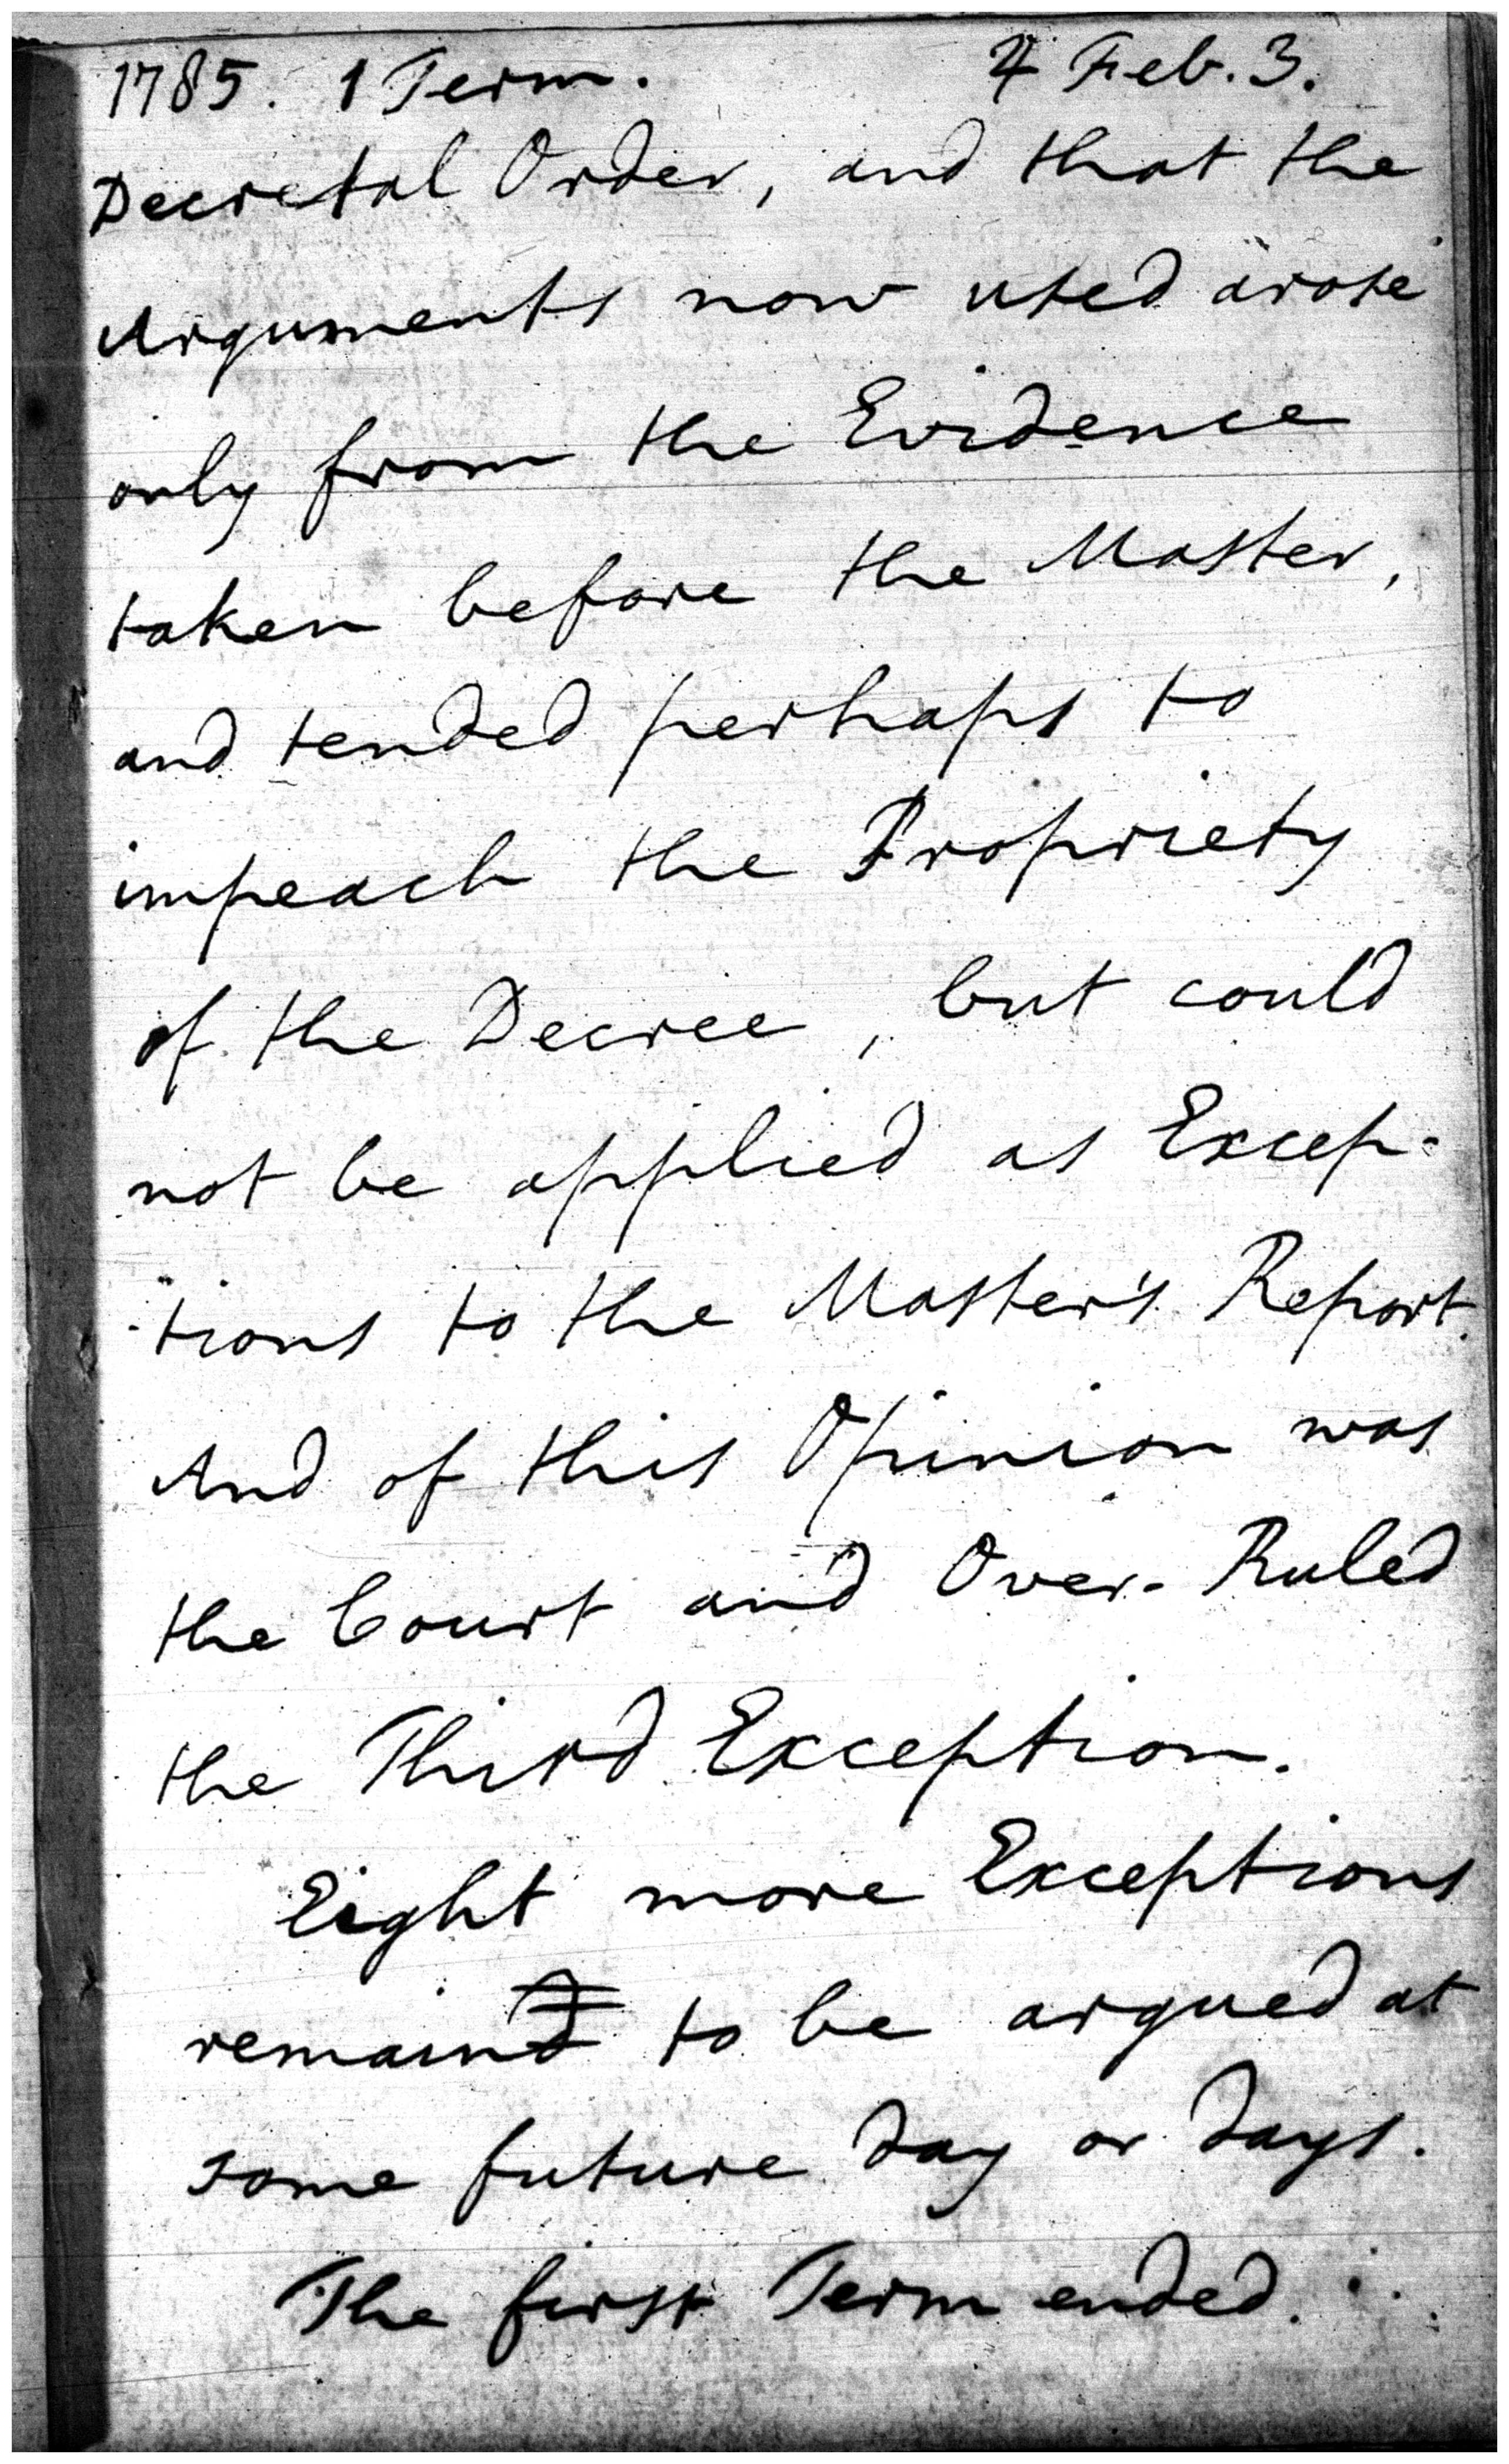 1785. 1 Term. 4 Feb. 3.
Decretal Order, and that the
Arguments now used arose
only from the Evidence
taken before the Master,
and tended perhaps to
impeach the Propriety
of the Decree, but could
not be applied as Excep-
-tions to the Master's Report.
And of this Opinion was
the Court and Over-Ruled
the Third Exception.
Eight more Exceptions
remain to be argued at
some future day or days.
The first Term ended.